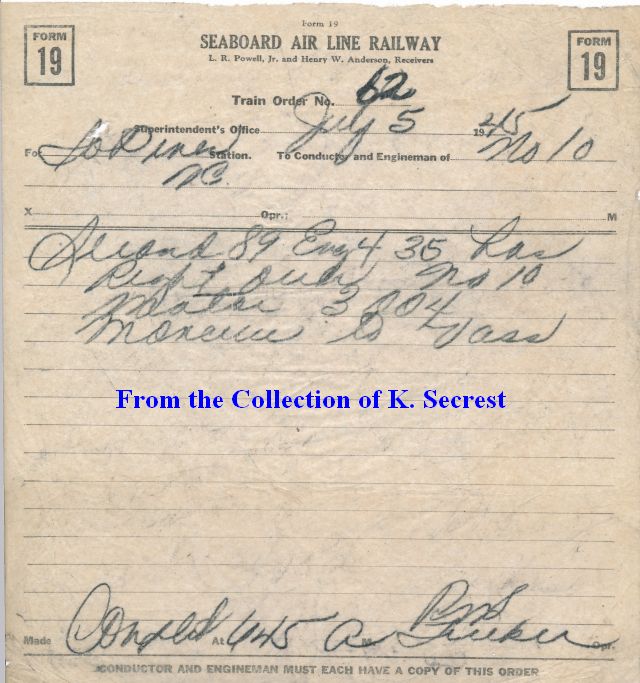 Form 19
FORM 19
SEABOARD AIR LINE RAILWAY
FORM 19
L. R. Powell, Jr. and Henry W. Anderson, Receivers
Train Order No. 62
Superintendent's Office July 5 1945
For So Pines Station. To Conductor and Engineman of No 10
NC.
X Opr.; M
Second 89 Eng 435 has
Right over No 10
Motor 3004
Moncure to Vass
From the Collection of K. Secrest
Made Complete At 645 A M Opr.
CONDUCTOR AND ENGINEMAN MUST EACH HAVE A COPY OF THIS ORDER